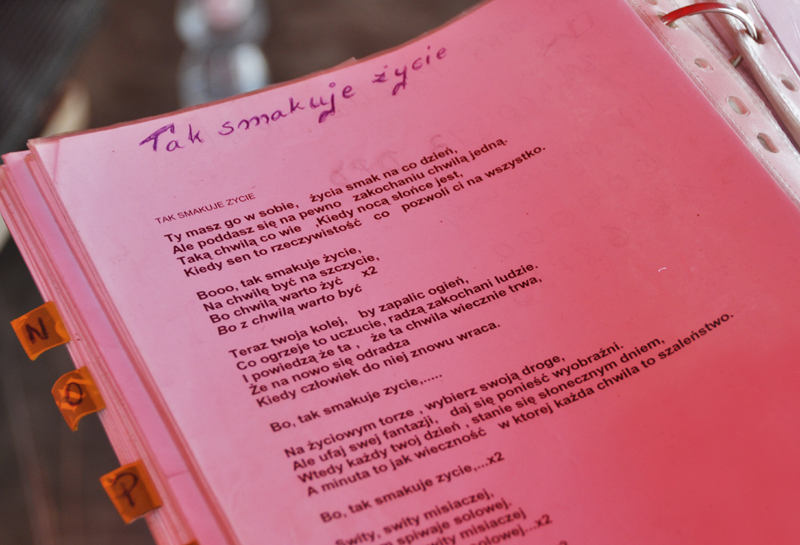 Tak smakuje życie
TAK SMAKUJE ZYCIE
Ty masz go w sobie, życia smak na co dzień,
Ale poddasz się na pewno zakochaniu chwilą jedną.
Taką chwilą co wie ,Kiedy nocą słońce jest,
Kiedy sen to rzeczywistość co pozwoli ci na wszystko.
Booo, tak smakuje życie,
Na chwilę być na szczycie,
Bo chwilą warto żyć x2
Bo z chwilą warto być
Teraz twoja kolej, by zapalic ogień,
Co ogrzeje to uczucie, radzą zakochani ludzie.
I powiedzą że ta , że ta chwila wiecznie trwa,
Że na nowo się odradza
Kiedy człowiek do niej znowu wraca.
Bo, tak smakuje życie,.....
Na życiowym torze , wybierz swoją droge,
Ale ufaj swej fantazji, daj się ponieść wyobraźni.
Wtedy każdy twoj dzień , stanie się słonecznym dniem,
A minuta to jak wieczność w ktorej każda chwila to szaleństwo.
Bo, tak smakuje zycie,...x2
Bo, tak smakuje życie,
Swity, swity misiaczej,
spiwaje solowej.
swity misiaczej
solowej...x2
N
O
P